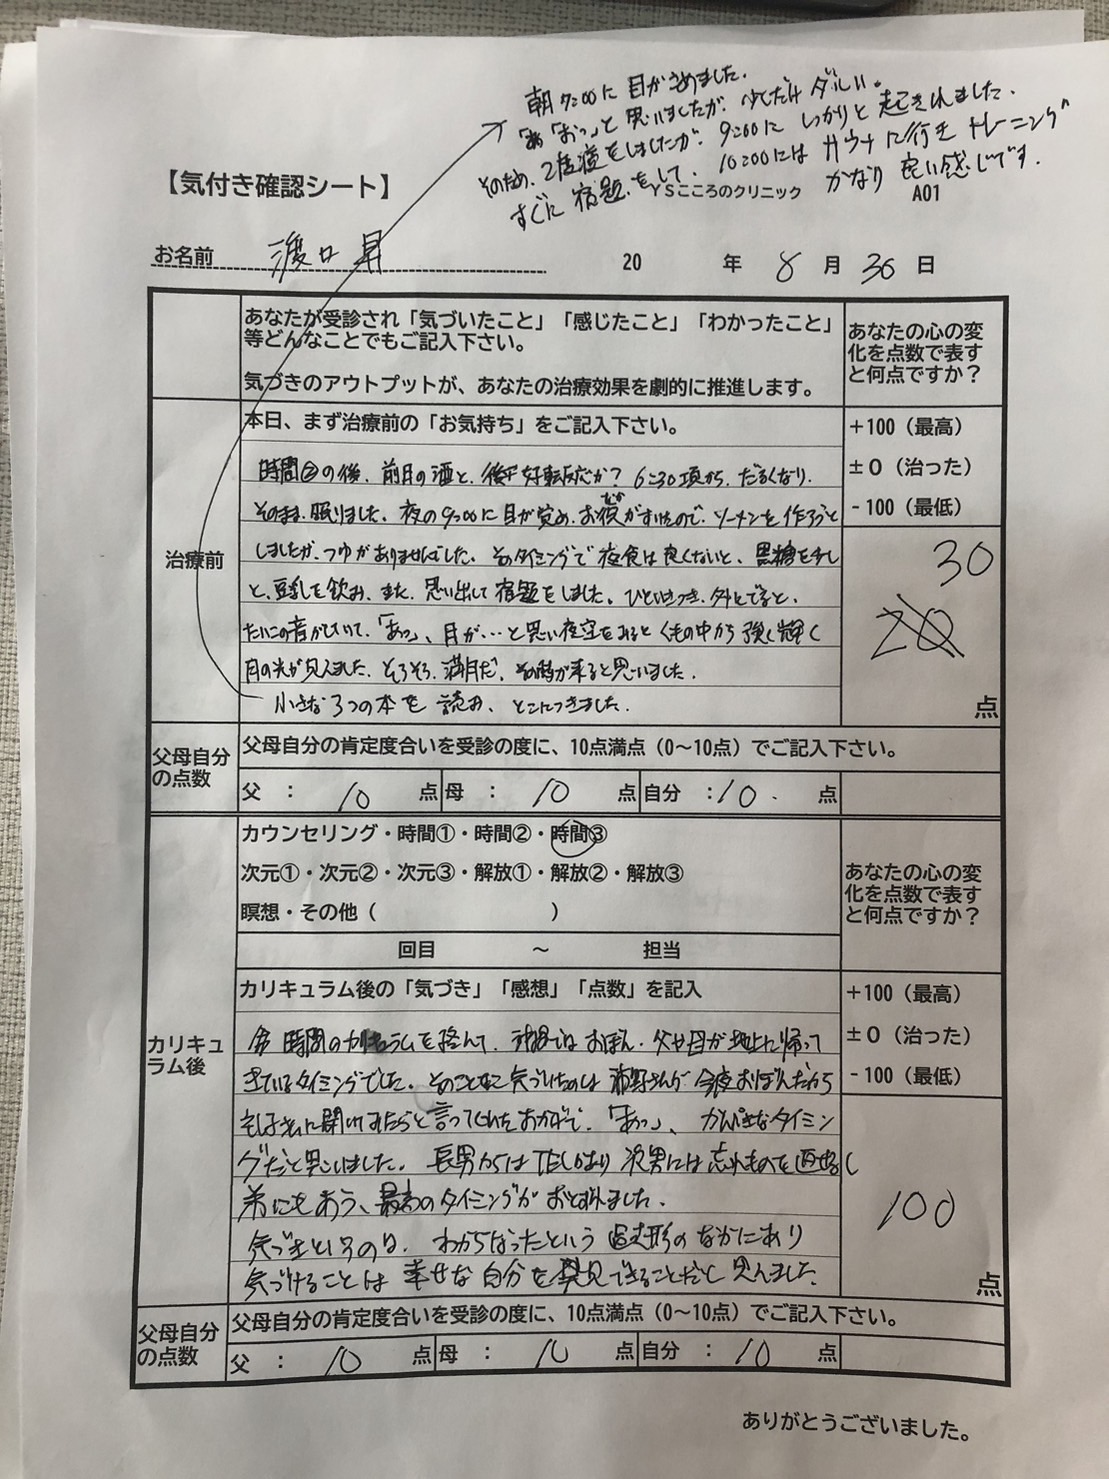 朝7:00に目がさめました。
「あっ」と思いましたが、少しだけダルい。
そのため、2度寝をしましたが、9:00にしっかりと起きれました。
すぐに宿題をして、10:00にはサウナに行きトレーニング
かなり良い感じです。
【気付き確認シート】
YSこころのクリニック A01
お名前 渡口 昇 20 年 8 月 30 日
あなたが受診され「気づいたこと」「感じたこと」「わかったこと」
等どんなことでもご記入下さい。
気づきのアウトプットが、あなたの治療効果を劇的に推進します。
あなたの心の変
化を点数で表す
と何点ですか？
治療前
本日、まず治療前の「お気持ち」をご記入下さい。
時間②の後、前日の酒と、好転反応か？6:30頃から、だるくなり、
そのまま、眠りました、夜の9:00に目が覚め、お腹がすいたので、ソーメンを作ろうと
しましたが、つゆがありませんでした。そのタイミングで夜食は良くないと、黒糖を少し
と、豆乳を飲み、また、思い出して宿題をしました。ひといきつき、外にでると、
たいこの音がしていて、「あっ」、月が…と思い夜空をみるとくもの中から強く輝く
月の光が見えました、そろそろ、満月だ、その時が来ると思いました。
小さな3つの本を読み、とこにつきました。
+100（最高）
±0（治った）
-100（最低）
30
20
点
父母自分
の点数
父母自分の肯定度合いを受診の度に、10点満点（0～10点）でご記入下さい。
父 ： 10 点 母 ： 10 点 自分 ：10. 点
カリキュ
ラム後
カウンセリング・時間①・時間②・時間③
次元①・次元②・次元③・解放①・解放②・解放③
瞑想・その他（ ）
回目 ～ 担当
あなたの心の変
化を点数で表す
と何点ですか？
カリキュラム後の「気づき」「感想」「点数」を記入
時間のカリキュラムを終えて、沖縄ではおぼん、父や母が地上に帰って
きているタイミングでした。そのことなに気づけたのは さんが今夜おぼんだから
に聞いてみたらと言ってくれたおかげで、「あっ」、かんぺきなタイミン
グだと思いました。長男からはTELがあり次男には忘れものを し
弟にもあう、最高のタイミングがおとずれました。
気づきというのは、わからなかったという過去形のなかにあり
気づけることは幸せな自分を発見できることだと思えました。
+100（最高）
±0（治った）
-100（最低）
100
点
父母自分
の点数
父母自分の肯定度合いを受診の度に、10点満点（0～10点）でご記入下さい。
父 ： 10 点 母 ： 10 点 自分 ： 10 点
ありがとうございました。